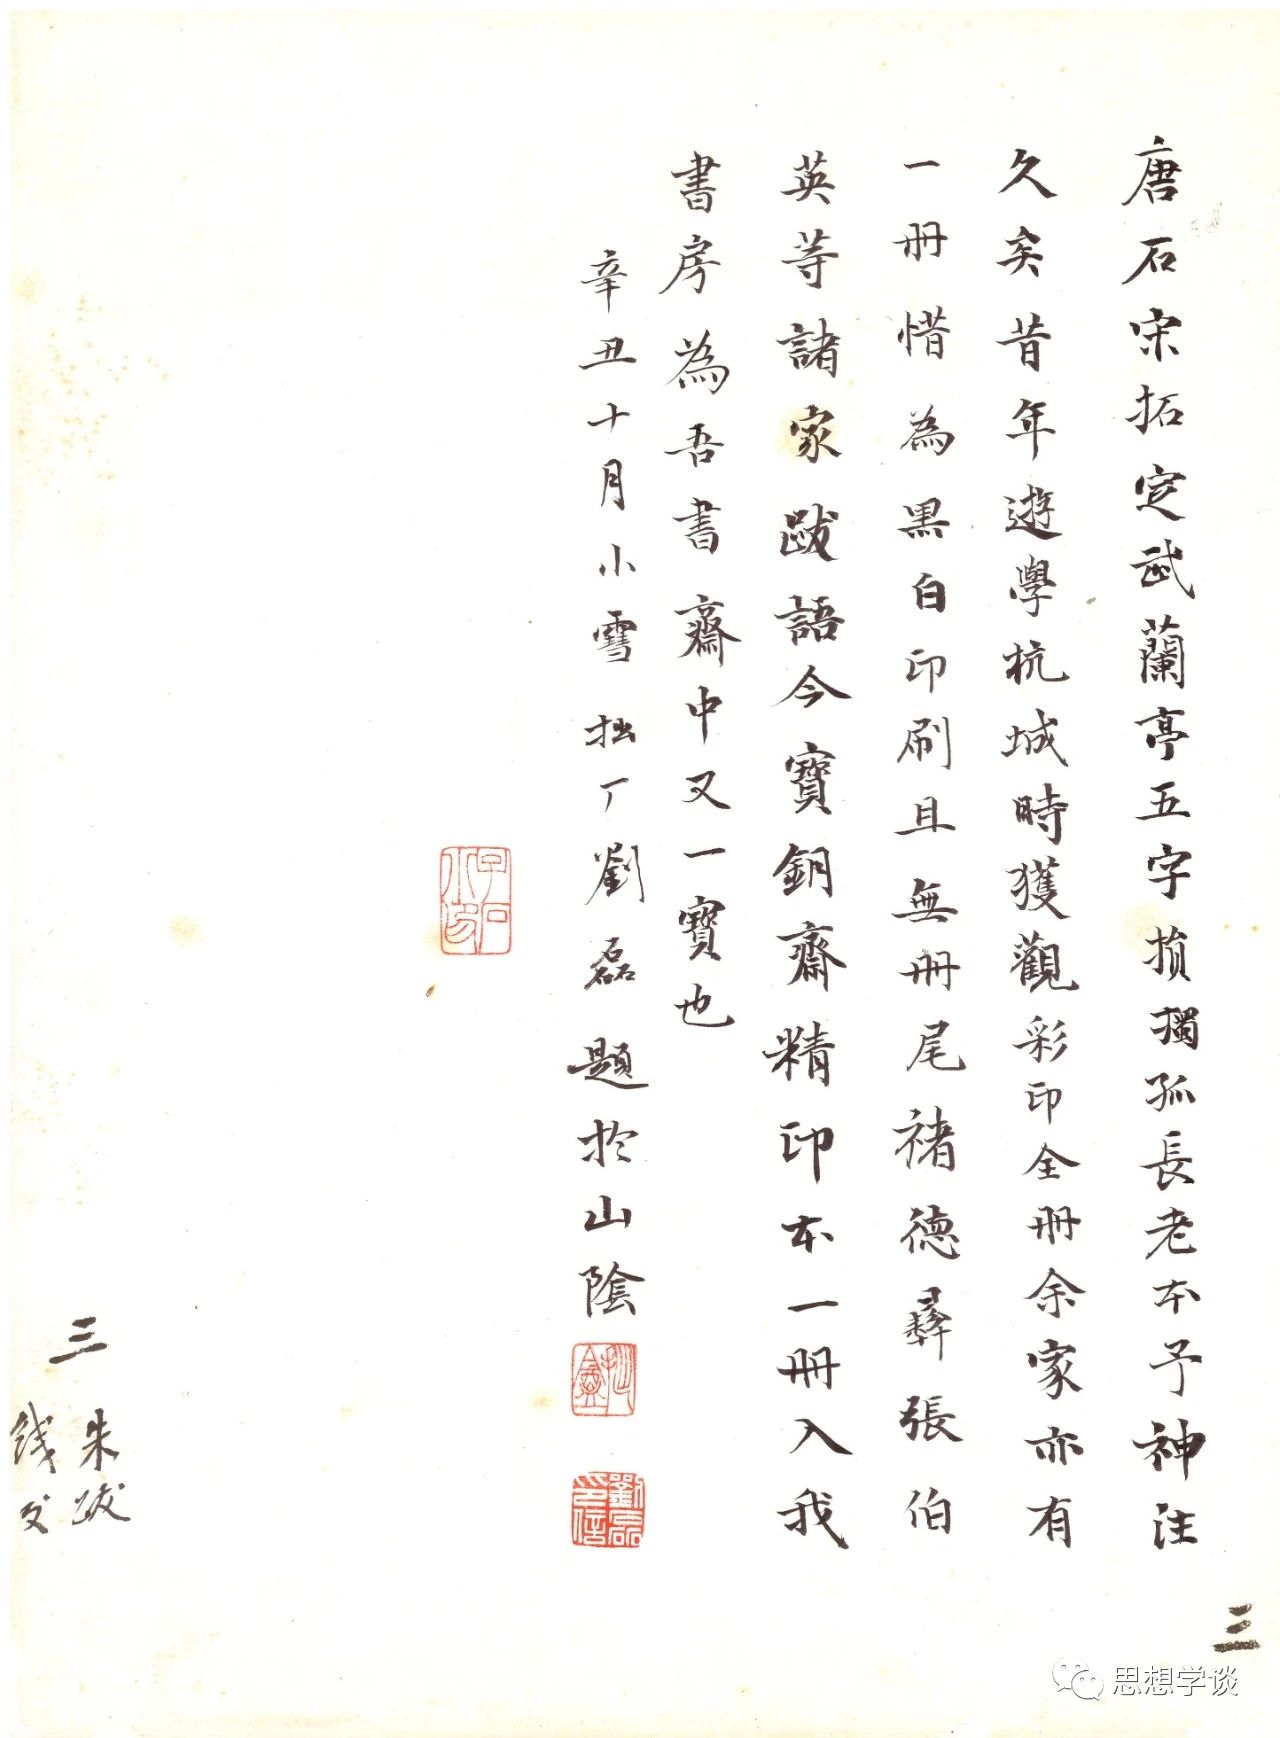 唐石宋拓定武蘭亭五字損獨孤長老本予神注
久矣昔年遊學杭城時獲觀彩印全册余家亦有
一册惜為黑白印刷且無册尾褚德彝張伯
英等諸家跋語今寶銅齋精印本一册入我
書房為吾書齋中又一寶也
辛丑十月小雪拙丁劉磊題於山陰
劉磊印信
三
朱跋
三
思想学谈